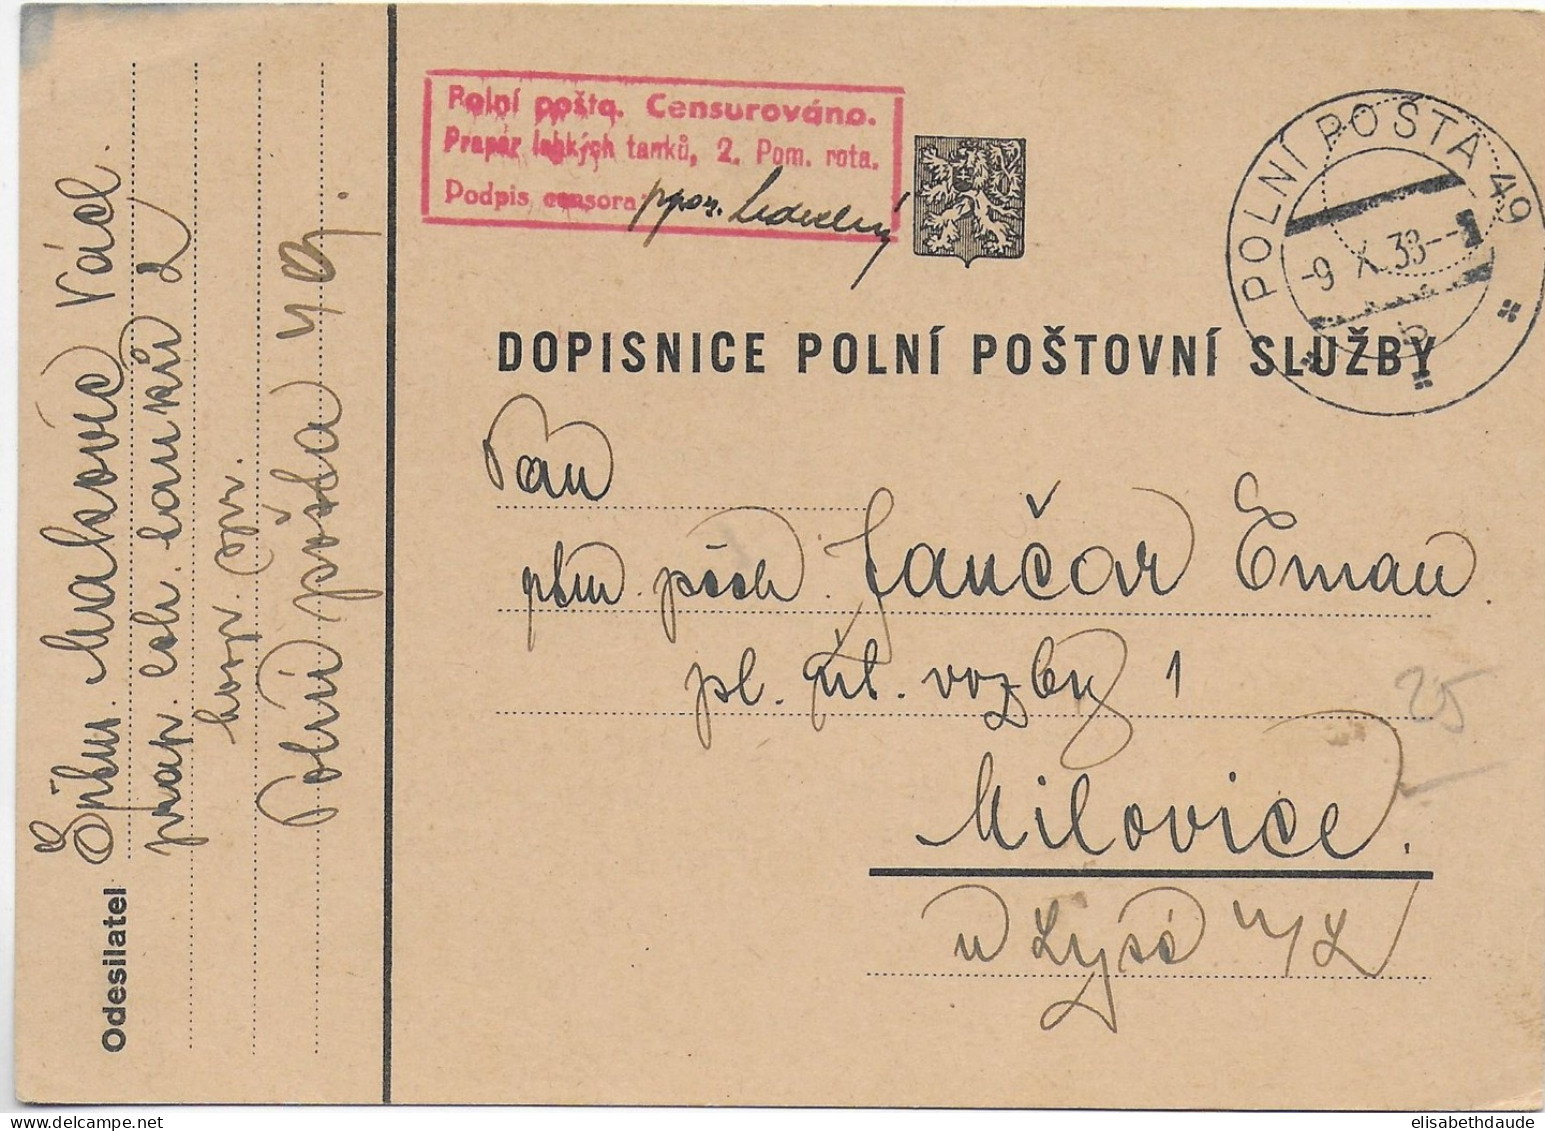 Polní pošta. Censurováno.
Prapor lehkých tanků, 2. Pom. rota.
Podpis censora:
POLNÍ POŠTA 49
-9 X 38--
b
DOPISNICE POLNÍ POŠTOVNÍ SLUŽBY
Pan
pěch. Jančar Eman
pl. út. vozby 1
Milovice.
u Lysé n/L
25
Odesilatel
Makovic Václ.
prap. leh. tanků 2
Polní pošta 49.
elisabethdaude